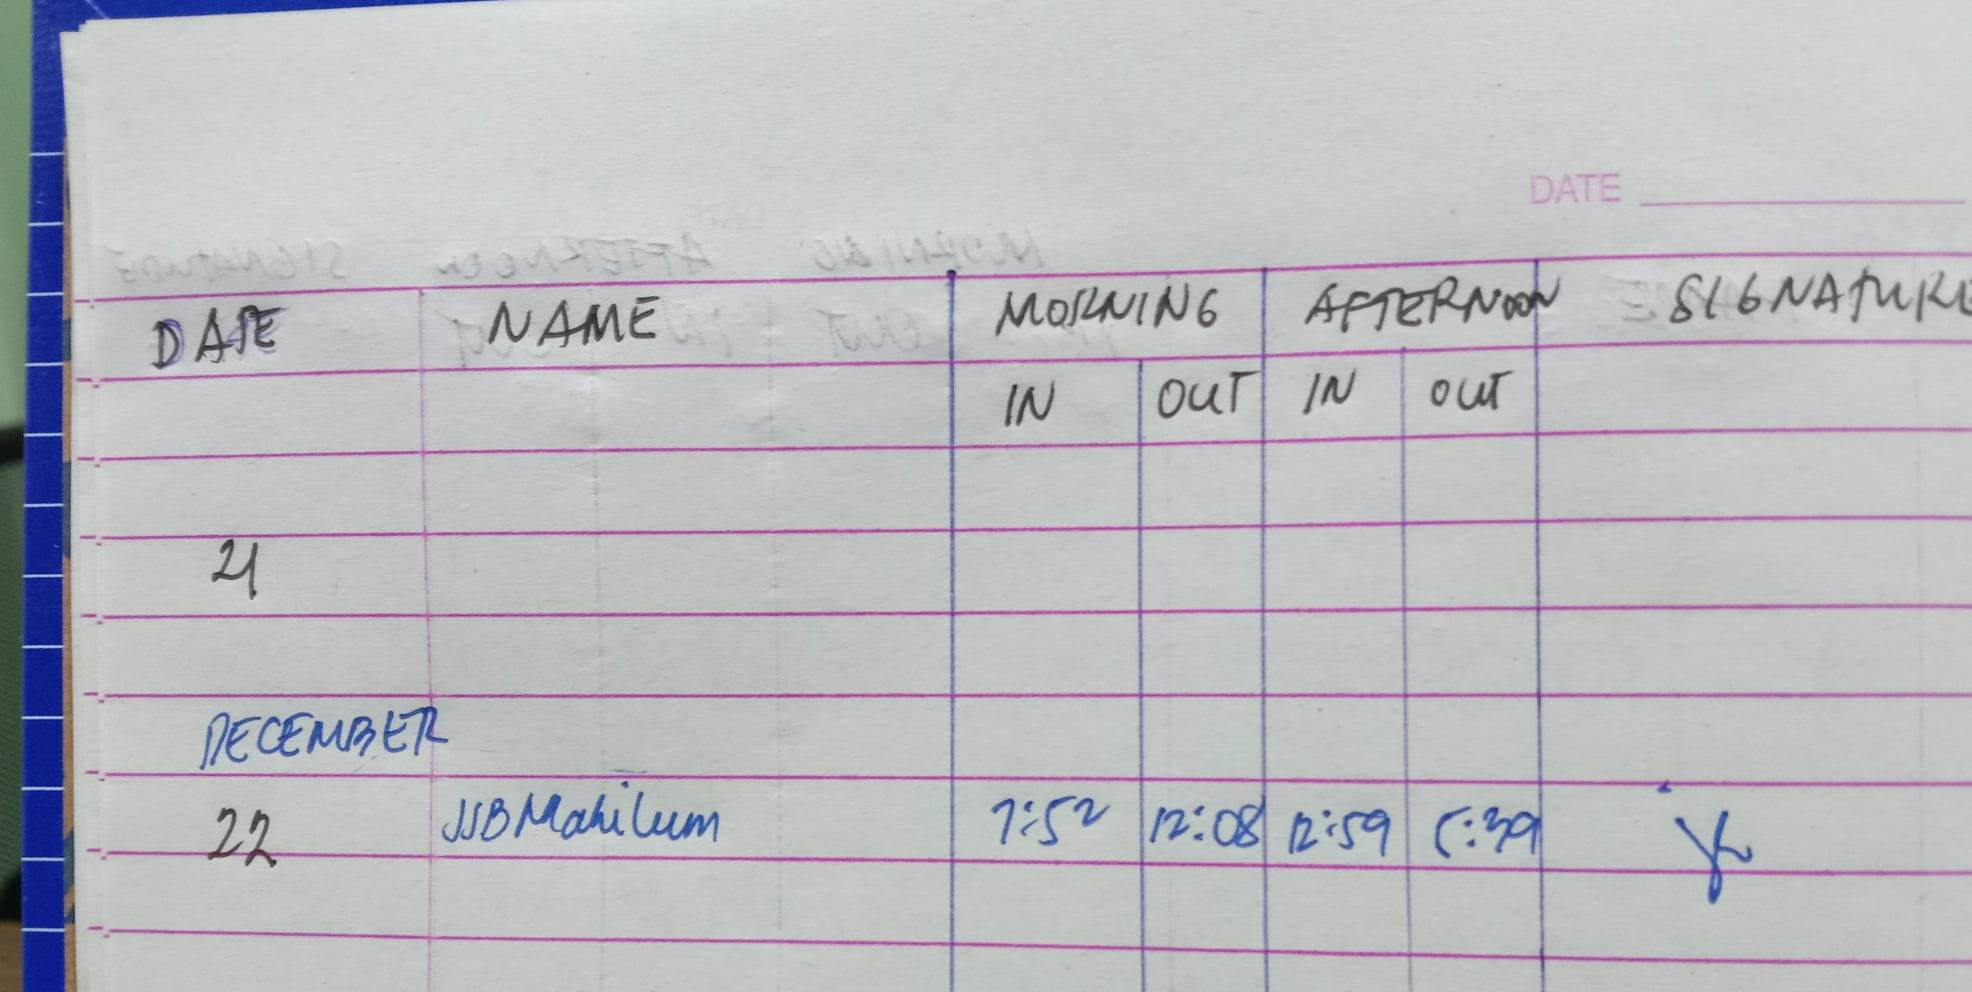 DATE
DATE NAME MORNING AFTERNOON SIGNATURE
IN OUT IN OUT
21
DECEMBER
22 JSBMahilum 7:52 12:08 12:59 5:39